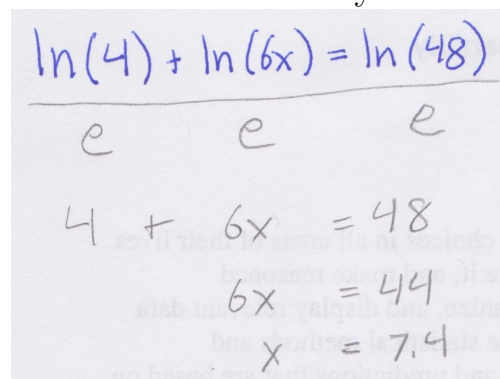 ln(4) + ln(6x) = ln(48)
e e e
4 + 6x = 48
6x = 44
x = 7.4